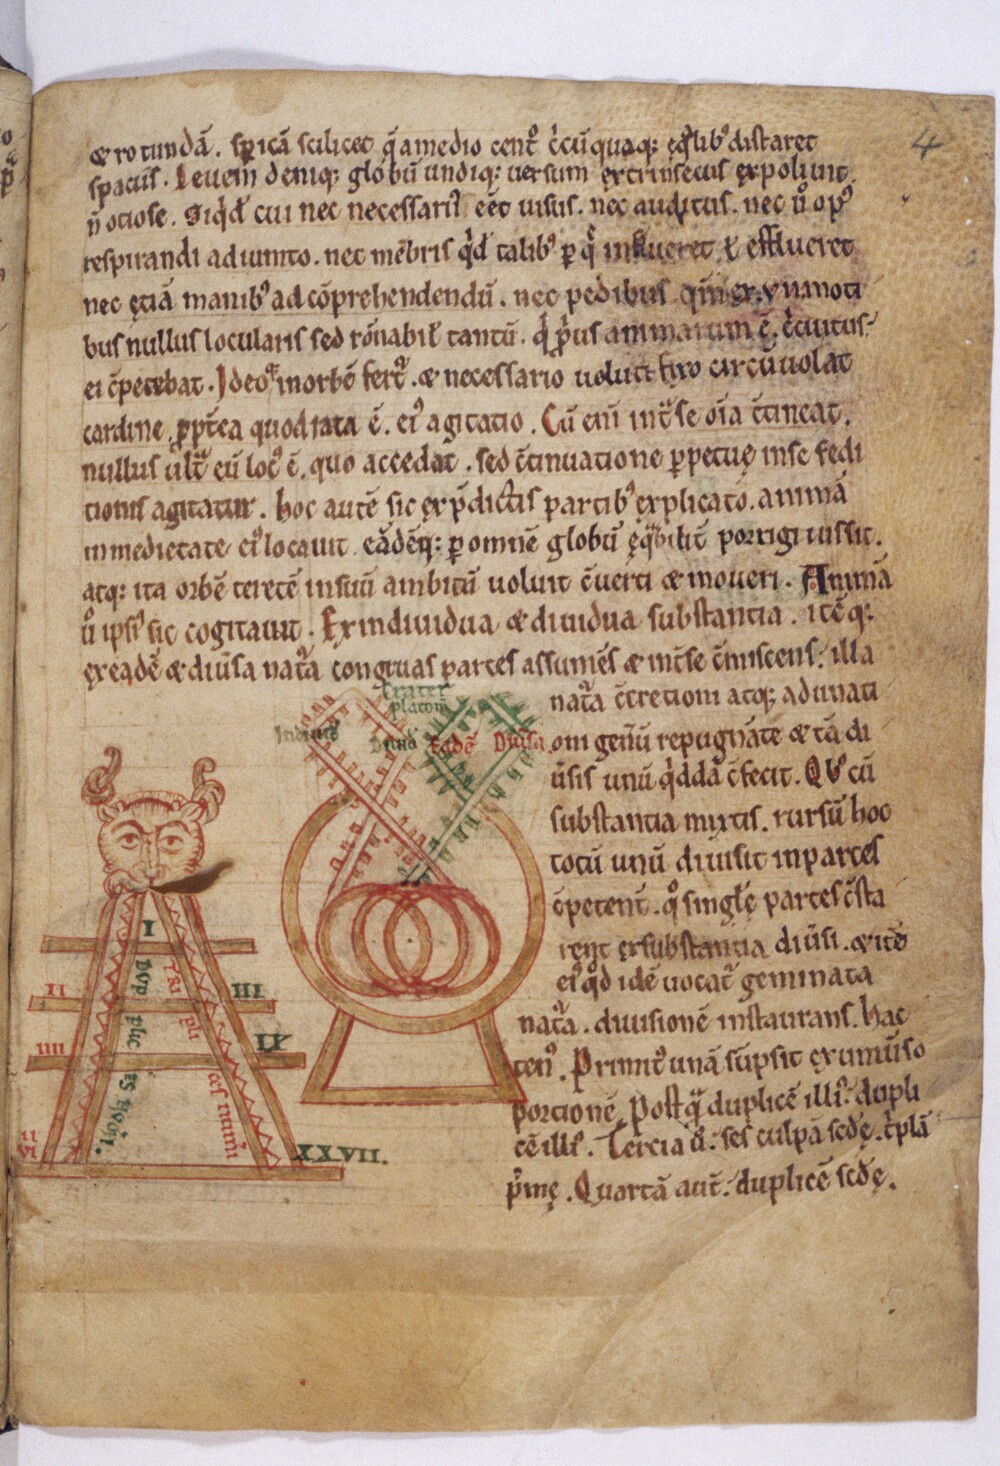 4
& rotundā. spicā scilicet q̄ a medio cent᷒ c̄cūquaq; ęq̄lib᷒ distaret
spaciis. Leuem deniq; globū undiq; uersum extrinsecus expoliuit.
n̄ ociose. Siq̇d cui nec necessari᷒ eēt uisus. nec auditus. nec ů op᷒
respirandi adiumto. nec mēbris q̇d talib᷒ p q̇ influeret & efflueret
nec ęciā manib᷒ ad cōprehendendū. nec pedibus moti
bus nullus localaris sed rōnabil' tantū. q̇ p̄us animarum ē. c̄cuitus
ei c̄petebat. Ideo orbē fert᷒. & necessario uoluit circūuolat
cardine. ppt̄ea quod rata ē. ei᷒ agitatio. Cū eni int̄ se oīa c̄tineat.
nullus ult̄ eū loc᷒ ē. quo accedat. sed c̄tinuatione ppetuę in se
tionis agitatur. hoc autē sic ex p̄dictis partib᷒ explicato. animā
in medietate ei᷒ locauit. eādēq; p omnē globū ęq̄bilit̄ porrigi iussit.
atq; ita orbē teretē in suū ambitū uoluit c̄uerti & moueri. Animā
ů ipsi᷒ sic cogitauit. Ex indiuidua & diuidua substantia. itē q;
ex eadē & diūsa nat̄a congruas partes assumēs & int̄ se c̄miscens. illa
nat̄a c̄cretioni atq; adunati
oni genū repugnāte & tā di
ūsis unū q̇ddā c̄fecit. Qů cū
substantia mixtis. rursū hoc
totū unū diuisit in partes
c̄petent. q᷒ singlę partes c̄sta
rent ex substantia diūsi. & itē
ei᷒ q̇d idē uocat̄ geminata
nat̄a. diuisionē instaurans. hac
ten᷒. Primit᷒ unā sūpsit ex uniūso
portionē. Postq̄ duplicē illi᷒. dupli
cē illi᷒. Tercia ů. ses culpā scdę. t̄plā
p̄mę. Quartā aut̄. duplicē scdę.
Crater
platonis
Indiuid
Diuid
Eadē
Diūsa
I
II
III
IIII
IX
XXVII.
dup
plic
es
tri
pli
ces numi